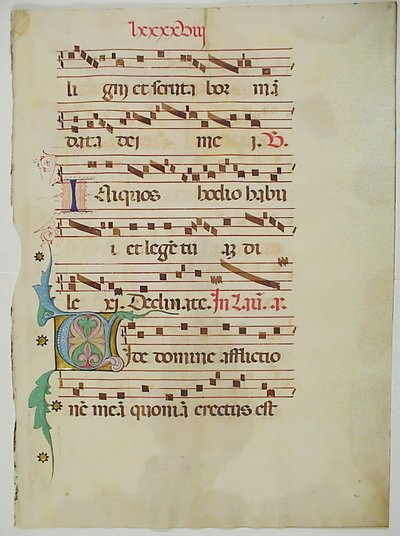 lxxxxviij
li gnj et scruta bor mā
data dei me i. V.
INiquos hodio habu
i et legē tu aʒ di
le xi. Declinate. In Lau. a.
Vide domine afflictio
nē meā quoniā erectus est